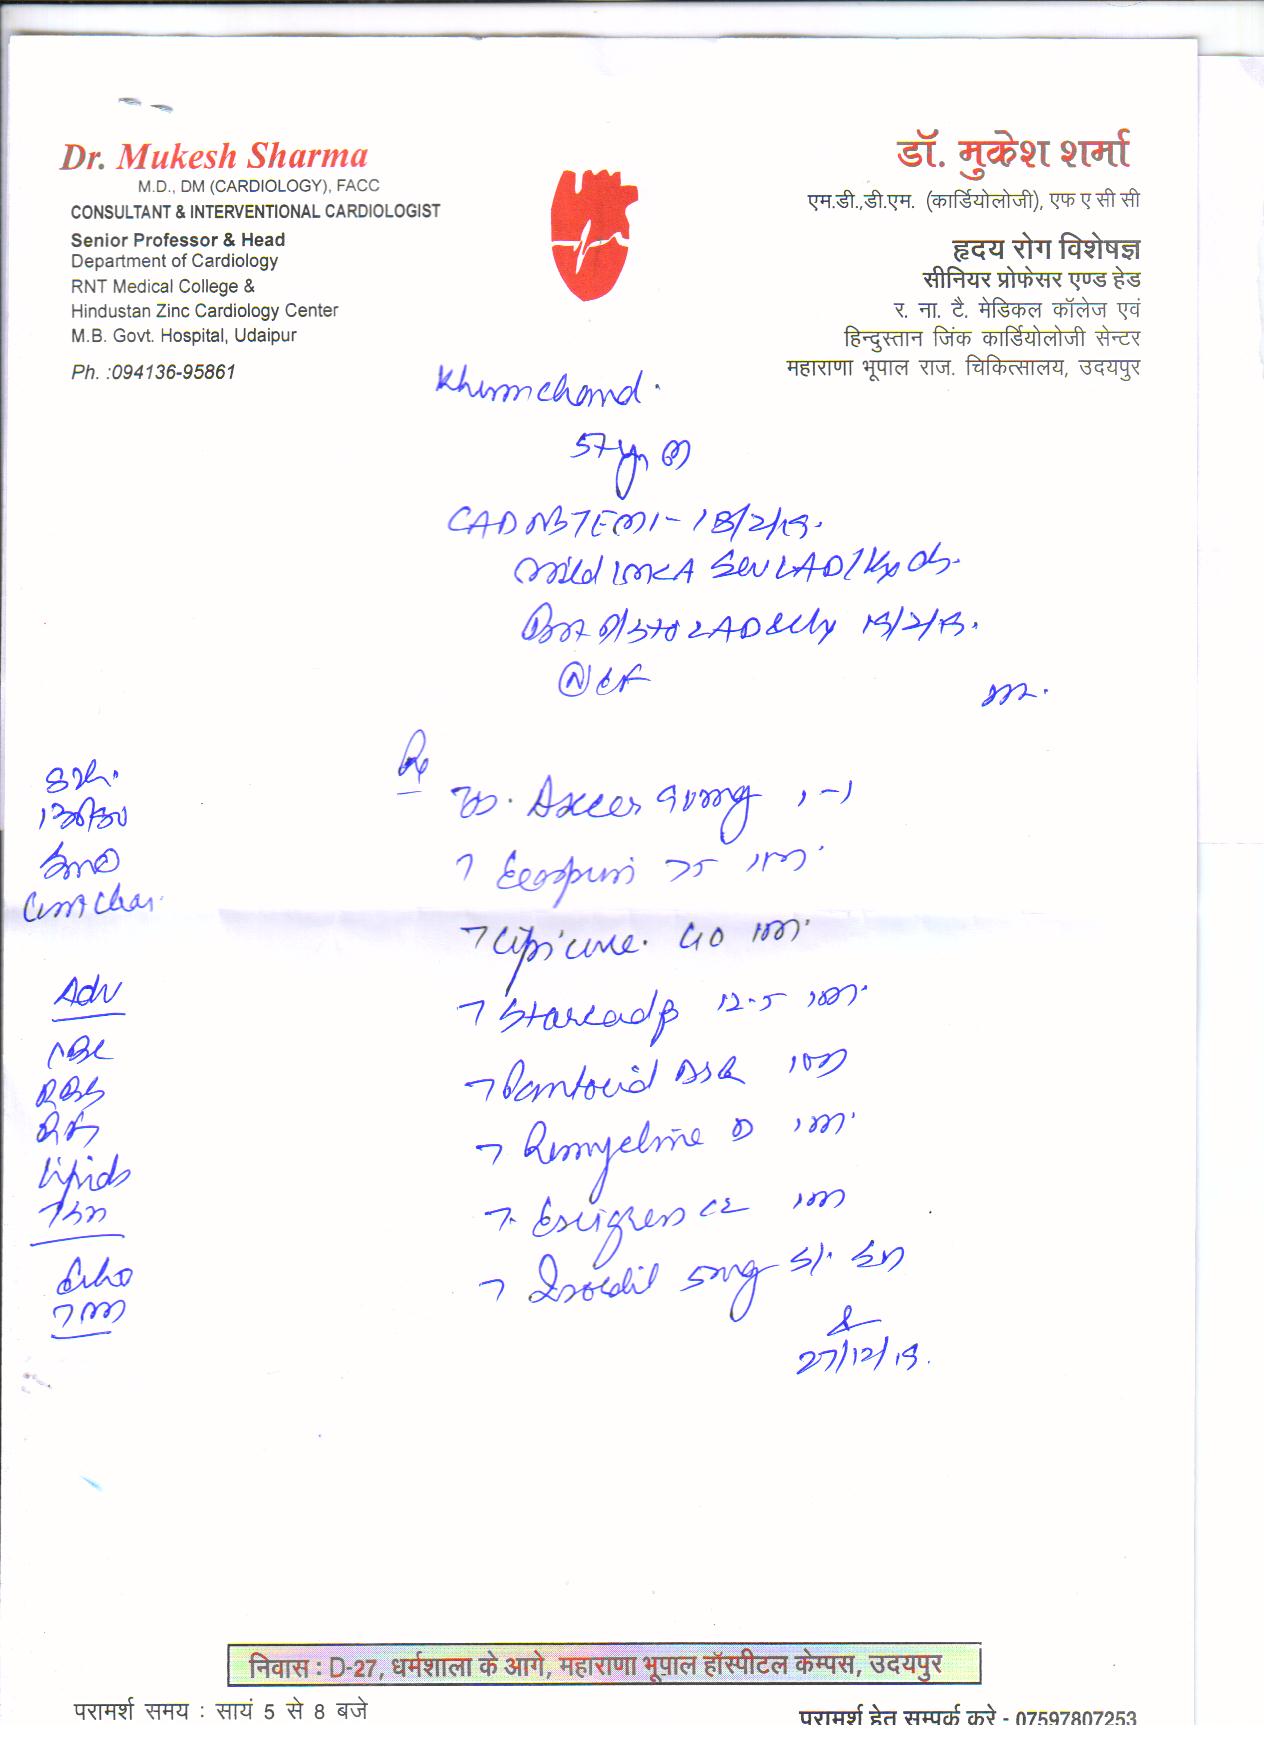 Dr. Mukesh Sharma
M.D., DM (CARDIOLOGY), FACC
CONSULTANT & INTERVENTIONAL CARDIOLOGIST
Senior Professor & Head
Department of Cardiology
RNT Medical College &
Hindustan Zinc Cardiology Center
M.B. Govt. Hospital, Udaipur
Ph. :094136-95861
डॉ. मुकेश शर्मा
एम.डी.,डी.एम. (कार्डियोलोजी), एफ ए सी सी
हृदय रोग विशेषज्ञ
सीनियर प्रोफेसर एण्ड हेड
र. ना. टै. मेडिकल कॉलेज एवं
हिन्दुस्तान जिंक कार्डियोलोजी सेन्टर
महाराणा भूपाल राज. चिकित्सालय, उदयपुर
Khemchand
57 yr M
CAD NSTEMI - 18/2/19
mild LMCA LAD/
to LAD & LCx
N EF
Rx
Axcer 90mg 1-1
T Ecosprin 75
T Lipicure 40
T Starcad 12.5
T Pantocid DSR
T D
T
T Isordil 5mg S/L
27/12/19
130/80
Adv
CBC
RBS
RFT
Lipids
TSH
Echo
निवास : D-27, धर्मशाला के आगे, महाराणा भूपाल हॉस्पीटल केम्पस, उदयपुर
परामर्श समय : सायं 5 से 8 बजे
परामर्श हेतु सम्पर्क करे - 07597807253